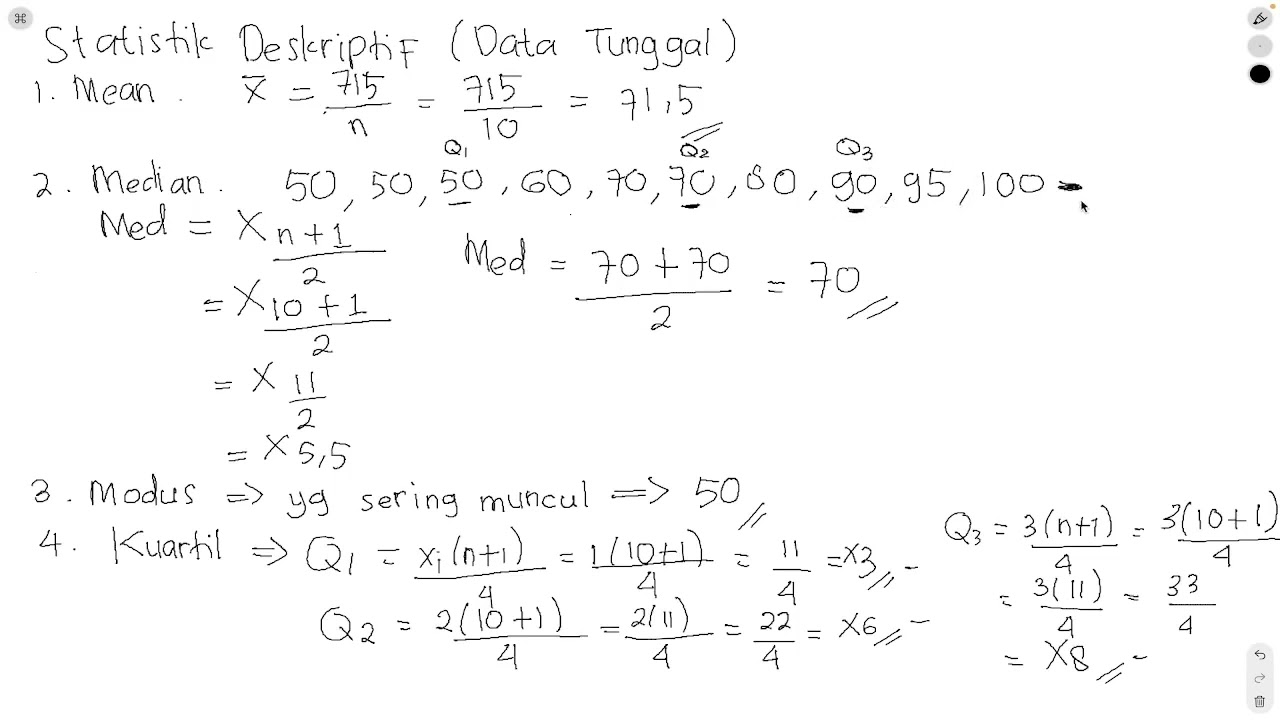 Statistik Deskriptif (Data Tunggal)
1. Mean. x̄ = 715/n = 715/10 = 71,5
Q1 Q2 Q3
2. Median. 50, 50, 50, 60, 70, 70, 80, 90, 95, 100
Med = X n+1/2
Med = 70+70/2 = 70
= X 10+1/2
= X 11/2
= X 5,5
3. Modus => yg sering muncul => 50
4. Kuartil => Q1 = xi(n+1)/4 = 1(10+1)/4 = 11/4 = X3
Q2 = 2(10+1)/4 = 2(11)/4 = 22/4 = X6
Q3 = 3(n+1)/4 = 3(10+1)/4
= 3(11)/4 = 33/4
= X8